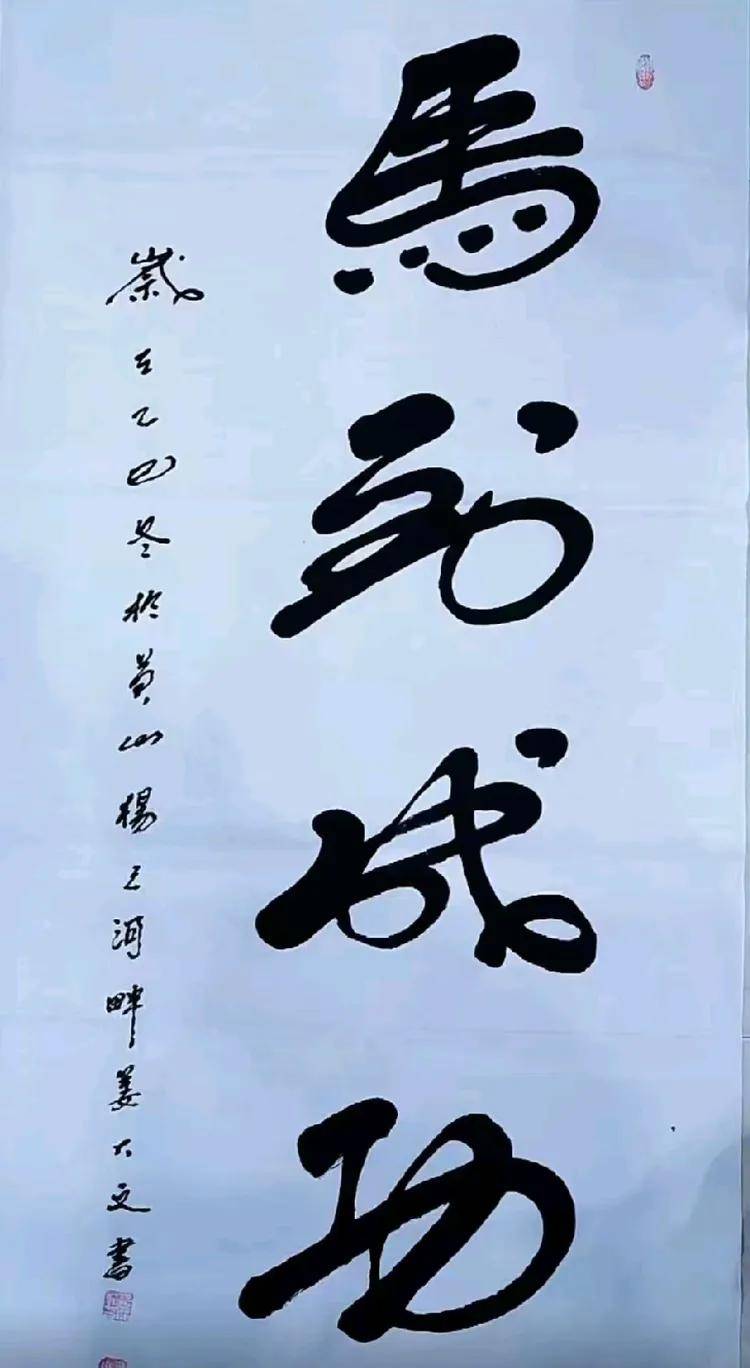 馬到成功
歲在乙巳冬於黄山楊之河畔姜大文書